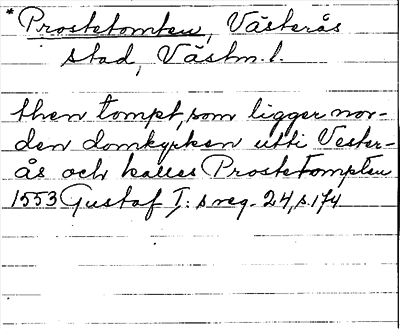 *Prostetomten, Västerås
stad, Västm. l.
then tompt, som ligger nor-
den domkyrken utti Vester-
ås och kalles Prostetompten
1553 Gustaf I:s reg. 24, s. 174